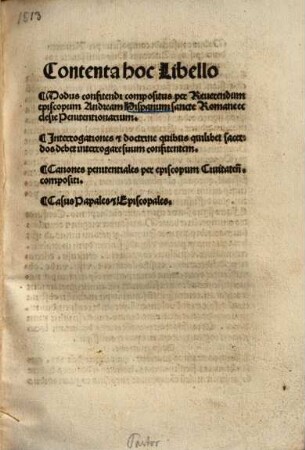 1513
Contenta hoc Libello
¶Modus confitendi compositus per Reuerendum
episcopum Andream Hispanum sancte Romane ec
clesie Penitentionarium.
¶Interrogationes ⁊ doctrine quibus quilibet sacer
dos debet interrogare suum confitentem.
¶Canones penitentiales per episcopum Ciuitateñ.
compositi.
¶Casus Papales ⁊ Episcopales.